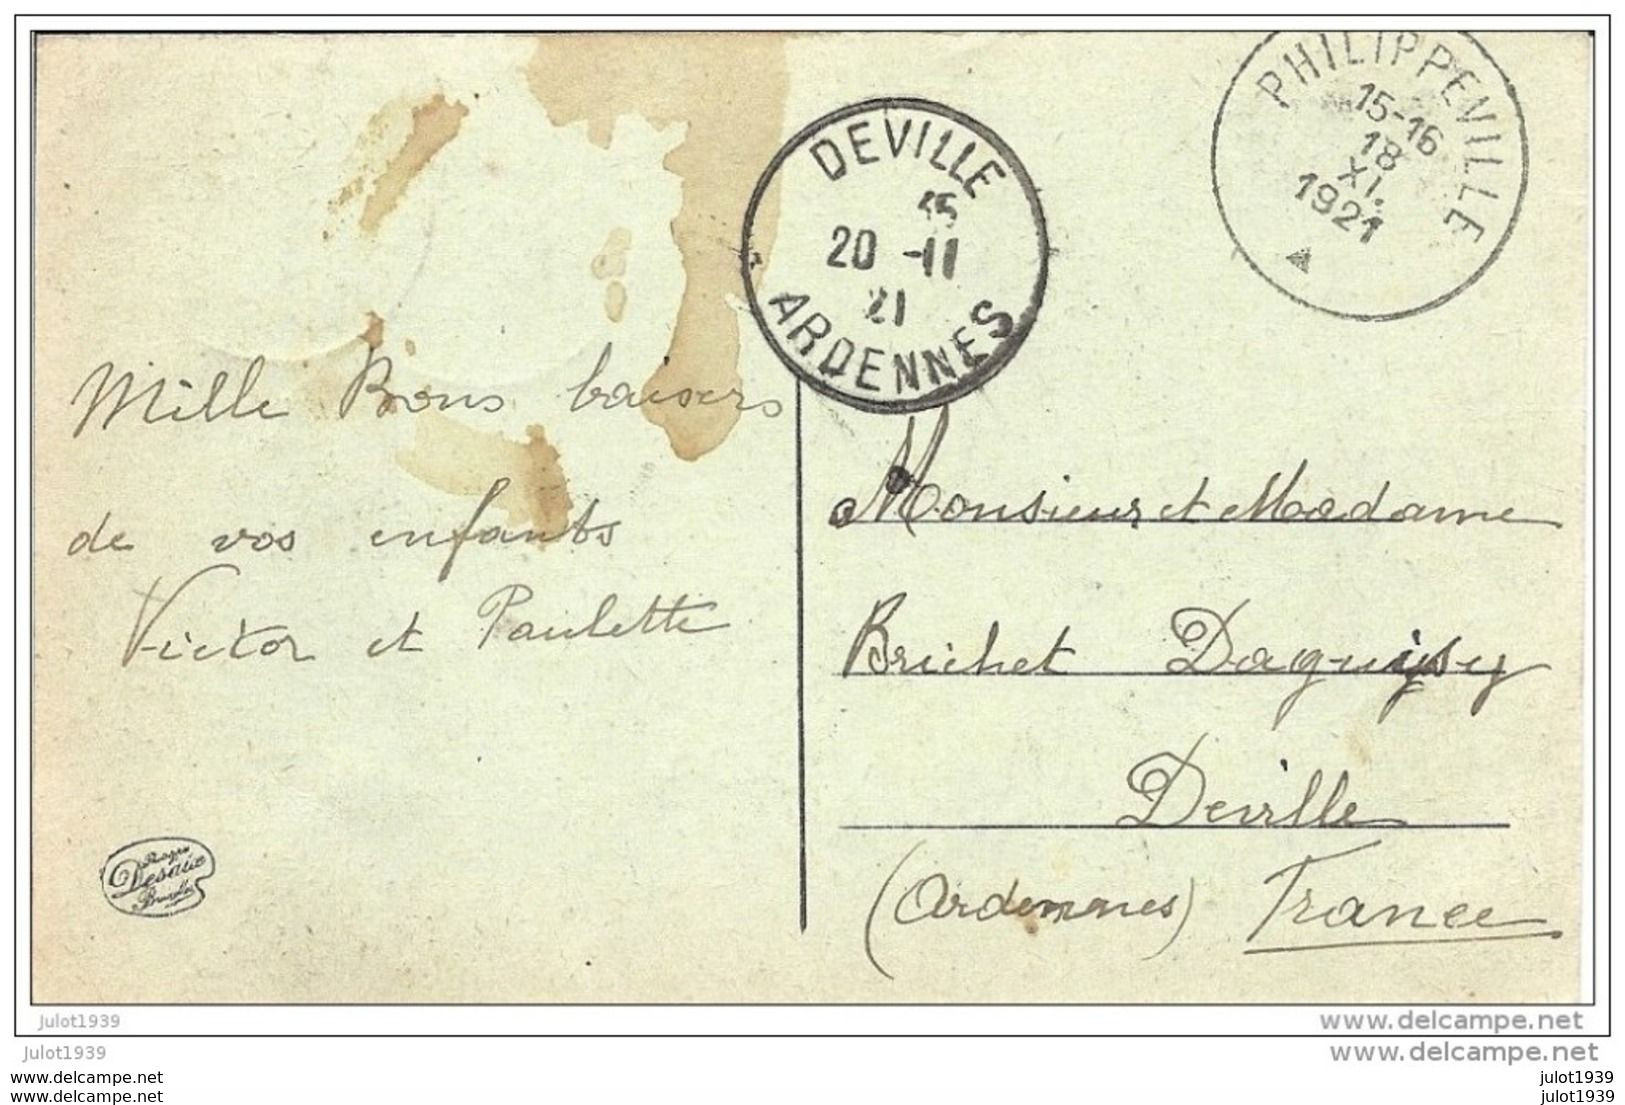 PHILIPPEVILLE
15-16
18
XI.
1921
DEVILLE
15
20 -11
21
ARDENNES
Mille Bons baisers
de vos enfants
Victor et Paulette
Monsieur et Madame
Brichet Daguisy
Deville
(Ardennes) France
Desaix
julot1939
www.delcampe.net
julot1939
www.delcampe.net
www.delcampe.net
www.delcampe.net
julot1939
julot1939